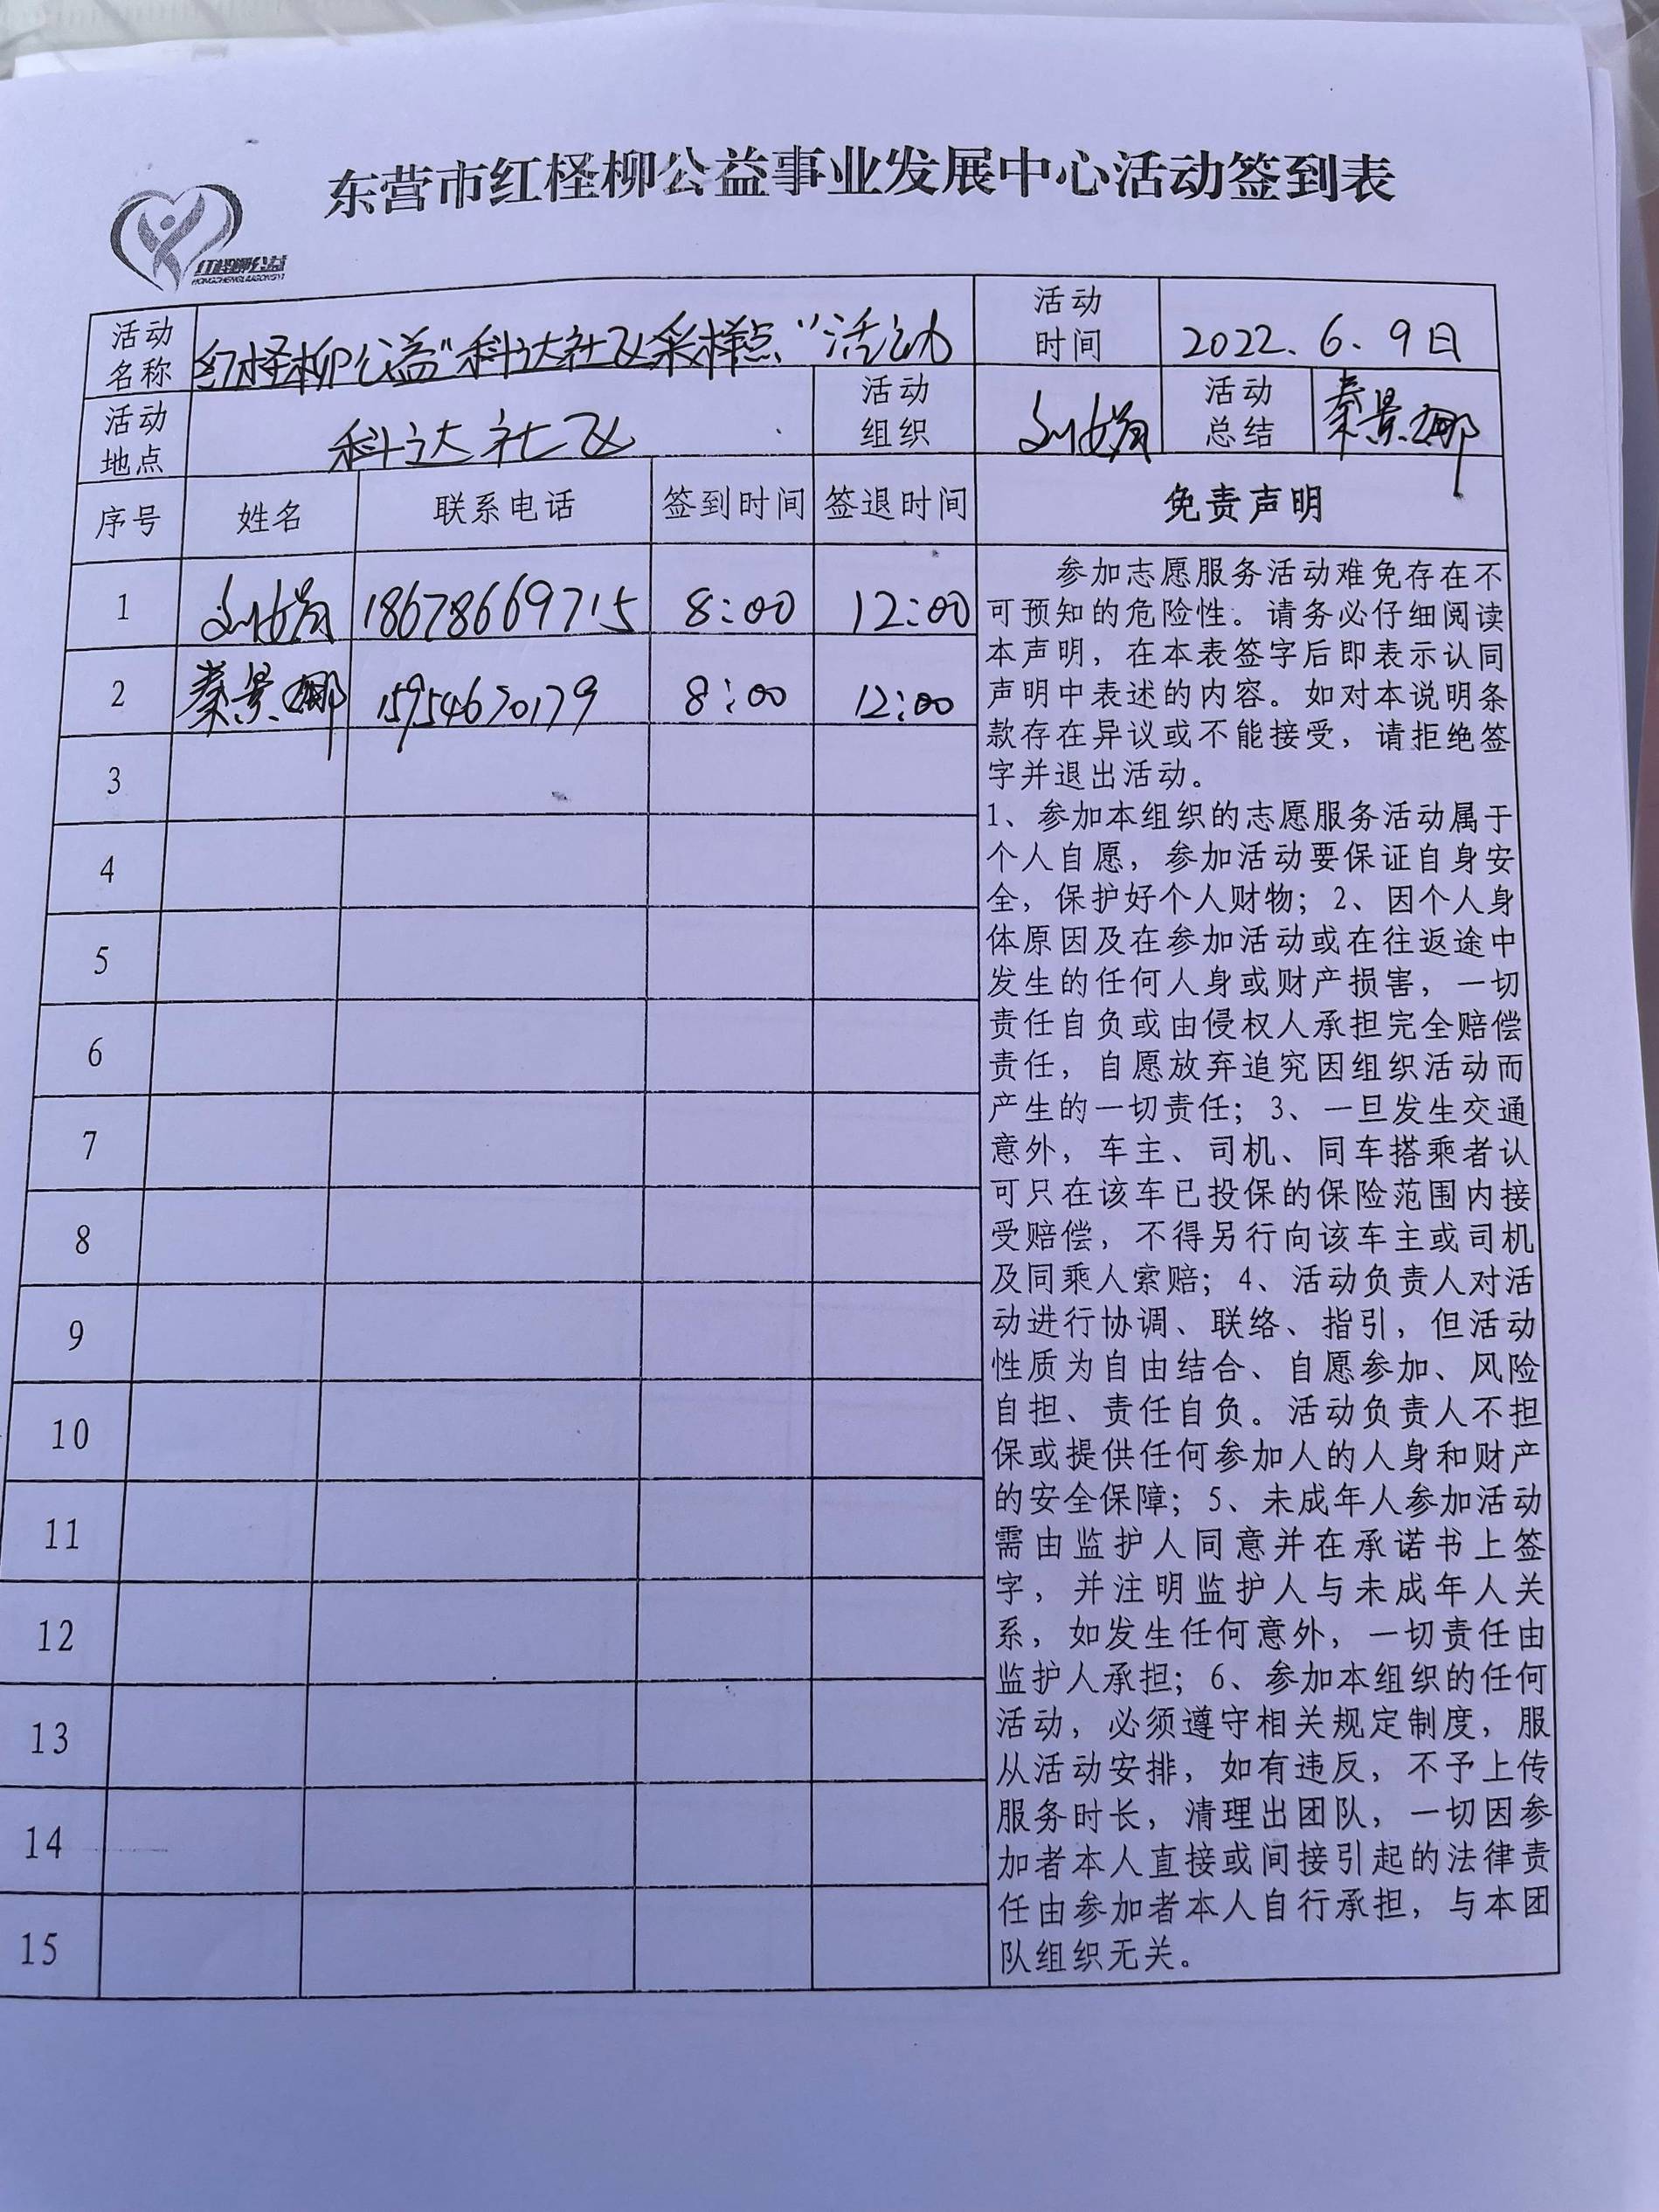 东营市红柽柳公益事业发展中心活动签到表
红柽柳公益
HONGCHENGLIUGONGYI
活动名称 红柽柳公益“科达社区采样点”活动 活动时间 2022.6.9日
活动地点 科达社区 活动组织 刘娟 活动总结 秦景娜
序号 姓名 联系电话 签到时间 签退时间 免责声明
1 刘娟 18678669715 8:00 12:00
2 秦景娜 15954670179 8:00 12:00
3
4
5
6
7
8
9
10
11
12
13
14
15
参加志愿服务活动难免存在不
可预知的危险性。请务必仔细阅读
本声明，在本表签字后即表示认同
声明中表述的内容。如对本说明条
款存在异议或不能接受，请拒绝签
字并退出活动。
1、参加本组织的志愿服务活动属于
个人自愿，参加活动要保证自身安
全，保护好个人财物；2、因个人身
体原因及在参加活动或在往返途中
发生的任何人身或财产损害，一切
责任自负或由侵权人承担完全赔偿
责任，自愿放弃追究因组织活动而
产生的一切责任；3、一旦发生交通
意外，车主、司机、同车搭乘者认
可只在该车已投保的保险范围内接
受赔偿，不得另行向该车主或司机
及同乘人索赔；4、活动负责人对活
动进行协调、联络、指引，但活动
性质为自由结合、自愿参加、风险
自担、责任自负。活动负责人不担
保或提供任何参加人的人身和财产
的安全保障；5、未成年人参加活动
需由监护人同意并在承诺书上签
字，并注明监护人与未成年人关
系，如发生任何意外，一切责任由
监护人承担；6、参加本组织的任何
活动，必须遵守相关规定制度，服
从活动安排，如有违反，不予上传
服务时长，清理出团队，一切因参
加者本人直接或间接引起的法律责
任由参加者本人自行承担，与本团
队组织无关。